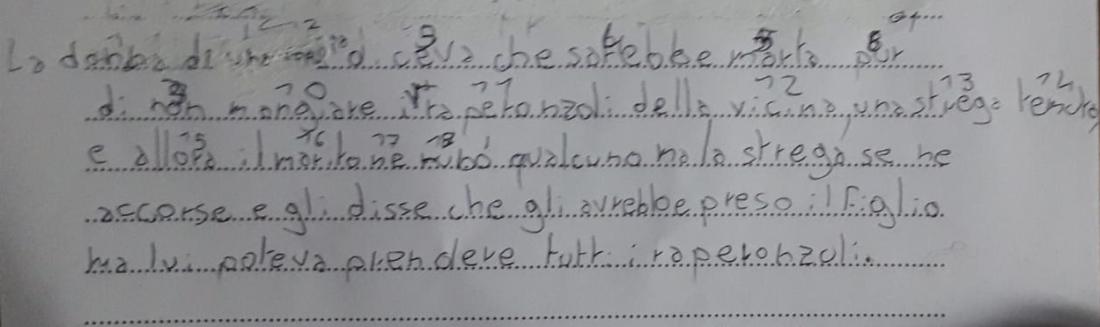 La donna di un diceva che sarebbe morta pur
di non mangiare i raperonzoli della vicina, una strega
e allora il marito ne rubò qualcuno ma la strega se ne
accorse e gli disse che gli avrebbe preso il figlio
ma lui poteva prendere tutti i raperonzoli.